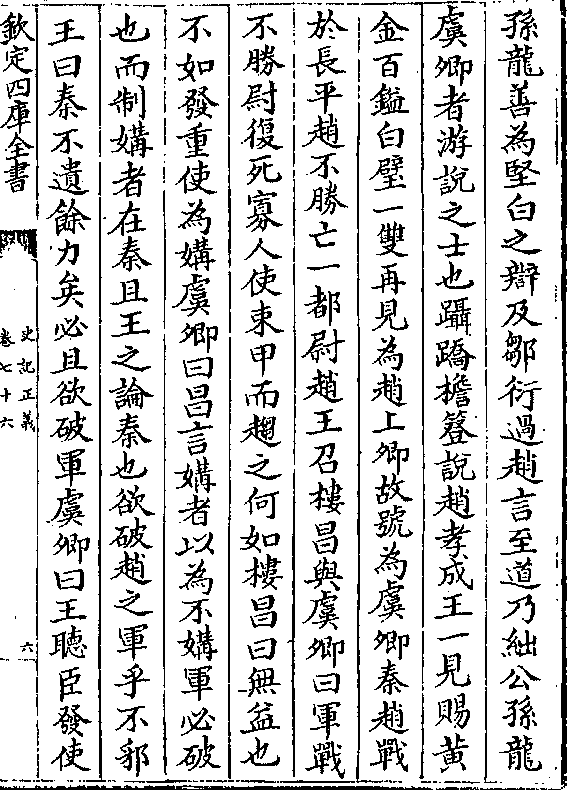 孫龍善為堅白之辯及鄒衍過趙言至道乃絀公孫龍
虞卿者游說之士也躡蹻擔簦說趙孝成王一見賜黃
金百鎰白璧一雙再見為趙上卿故號為虞卿秦趙戰
於長平趙不勝亡一都尉趙王召樓昌與虞卿曰軍戰
不勝尉復死寡人使束甲而趨之何如樓昌曰無益也
不如發重使為媾虞卿曰昌言媾者以為不媾軍必破
也而制媾者在秦且王之論秦也欲破趙之軍乎不邪
王曰秦不遺餘力矣必且欲破軍虞卿曰王聽臣發使
欽定四庫全書
史記正義
卷七十六
六